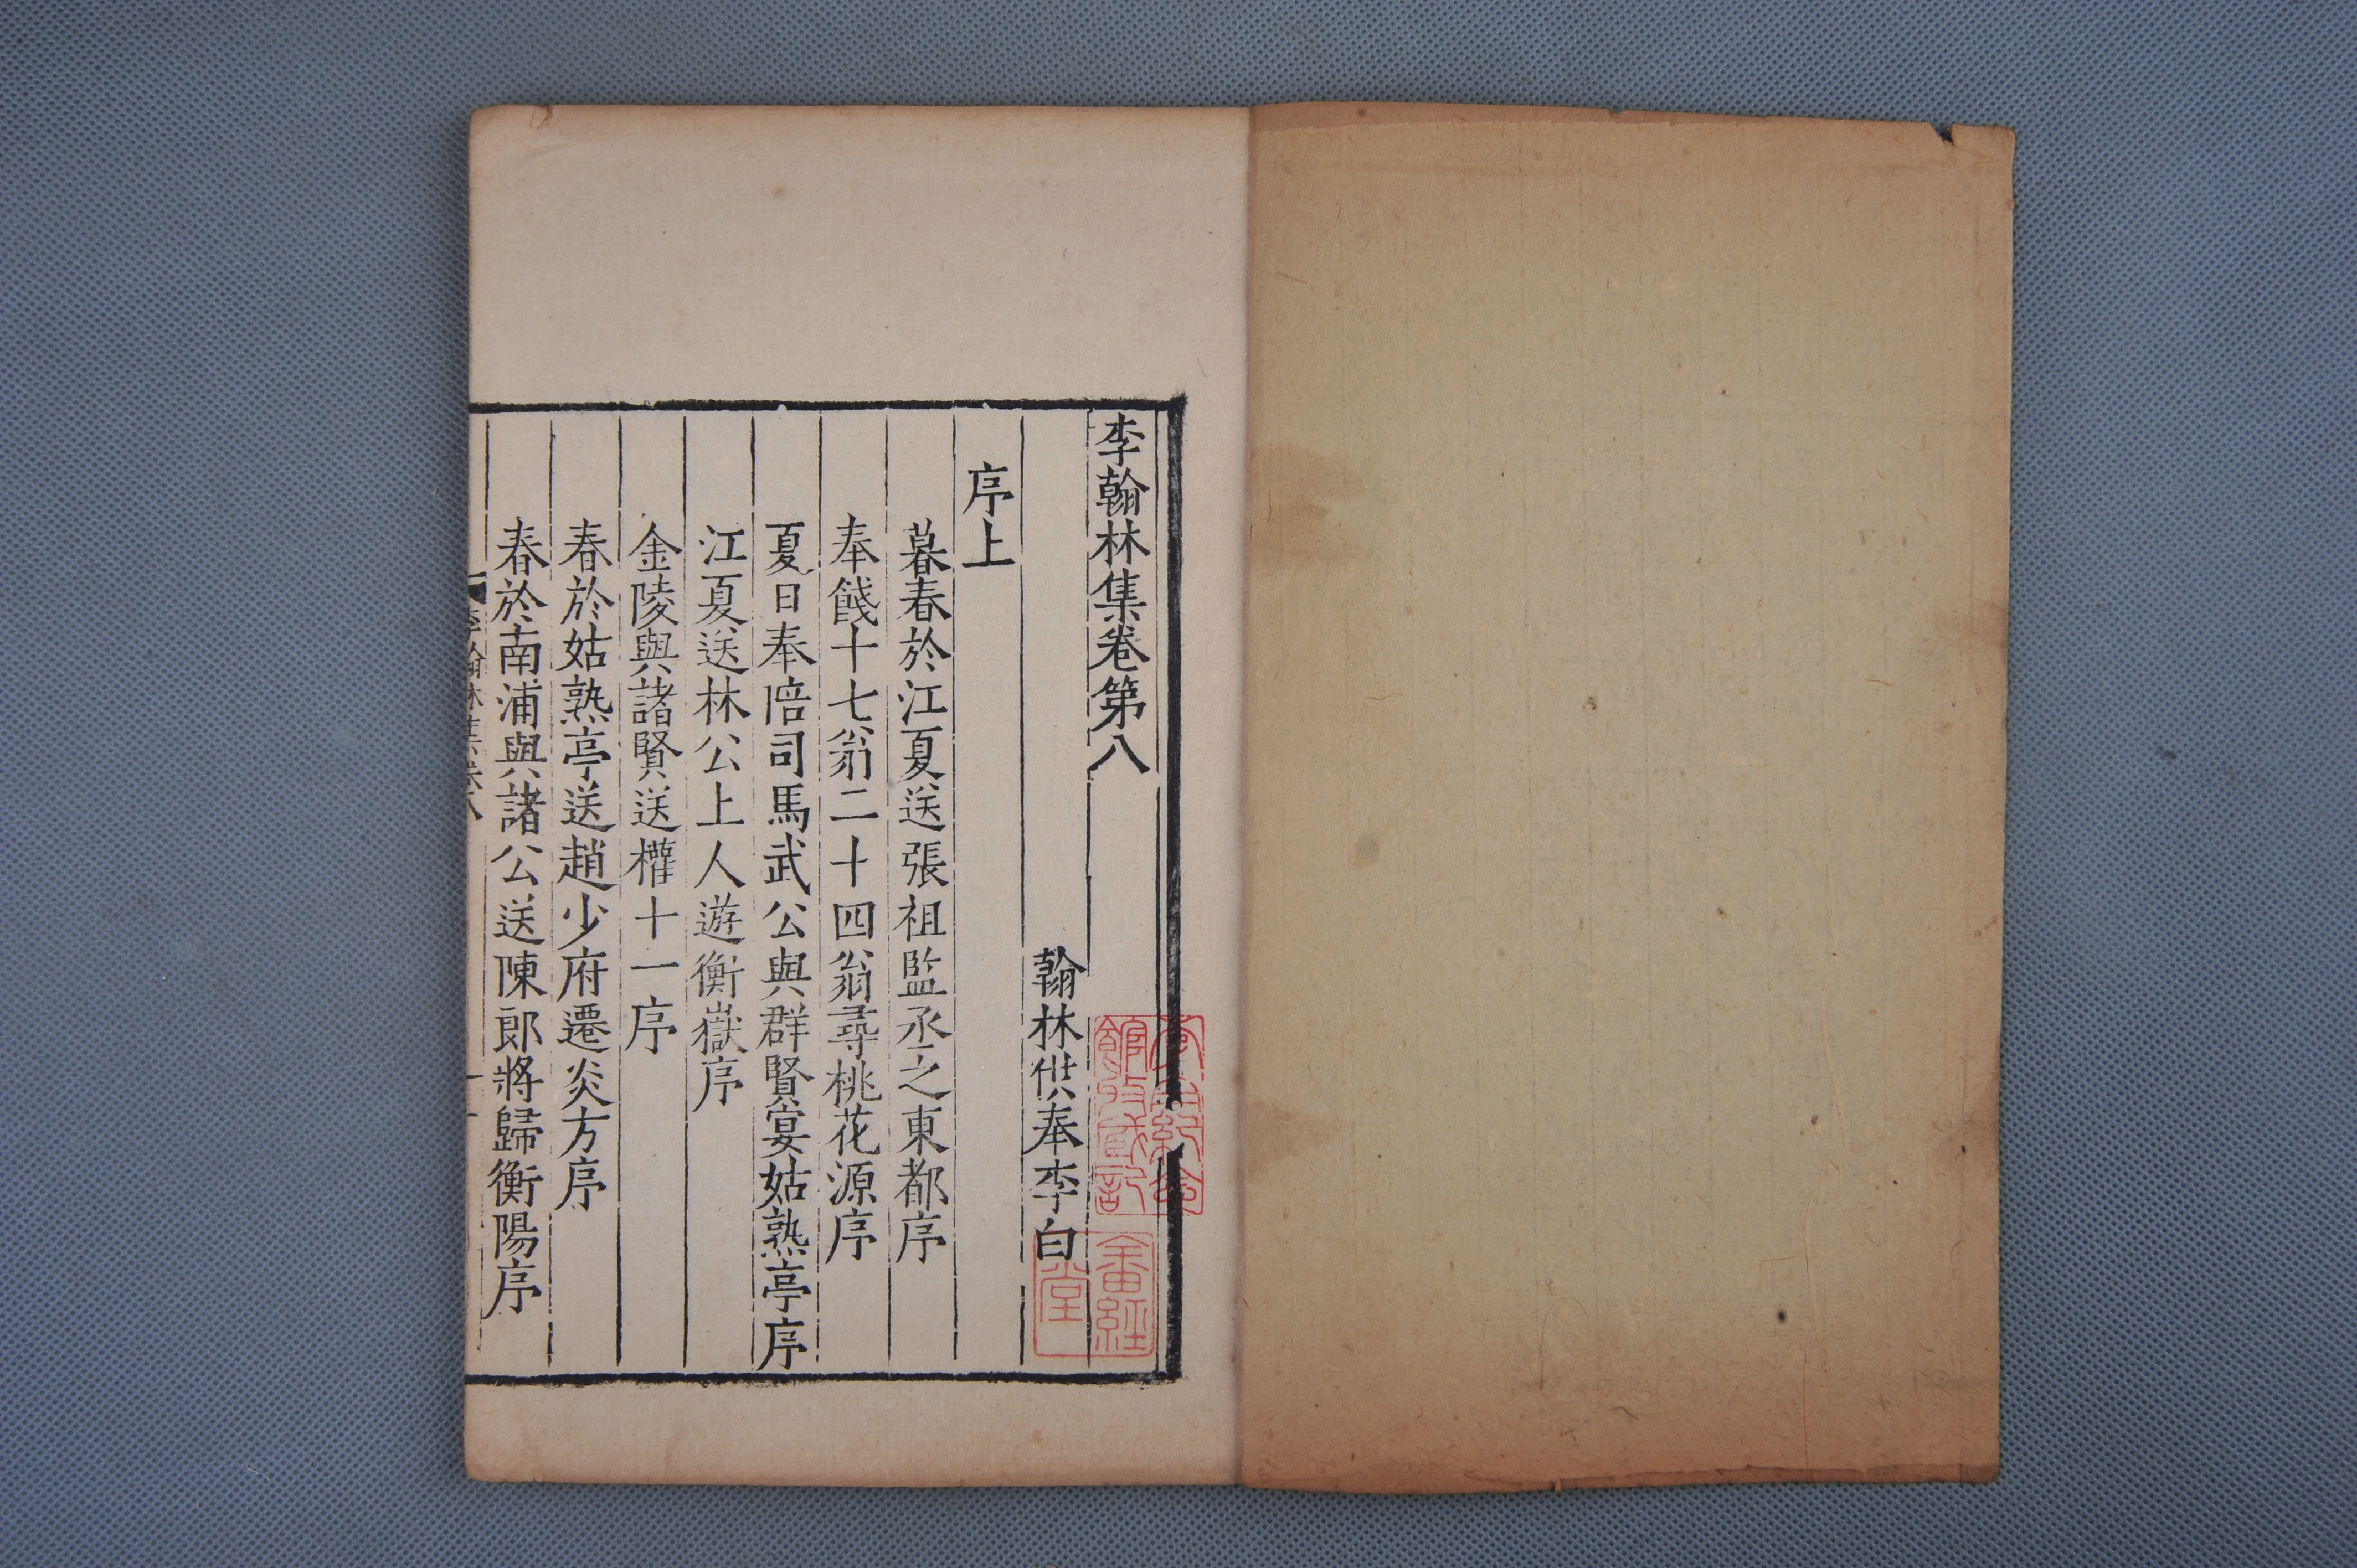 李翰林集卷第八
翰林供奉李白
序上
暮春於江夏送張祖監丞之東都序
奉餞十七翁二十四翁尋桃花源序
夏日奉陪司馬武公與群賢宴姑熟亭序
江夏送林公上人遊衡嶽序
金陵與諸賢送權十一序
春於姑熟亭送趙少府遷炎方序
春於南浦與諸公送陳郎將歸衡陽序
李翰林集卷八
一
館收藏記
畬經堂